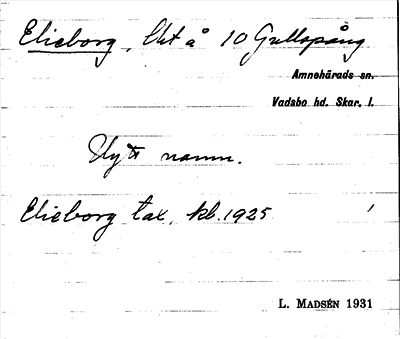 Elieborg, lht å 10 Gullspång
Amnehärads sn.
Vadsbo hd. Skar. l.
Nytt namn.
Elieborg tax. kb. 1925
L. MADSÉN 1931